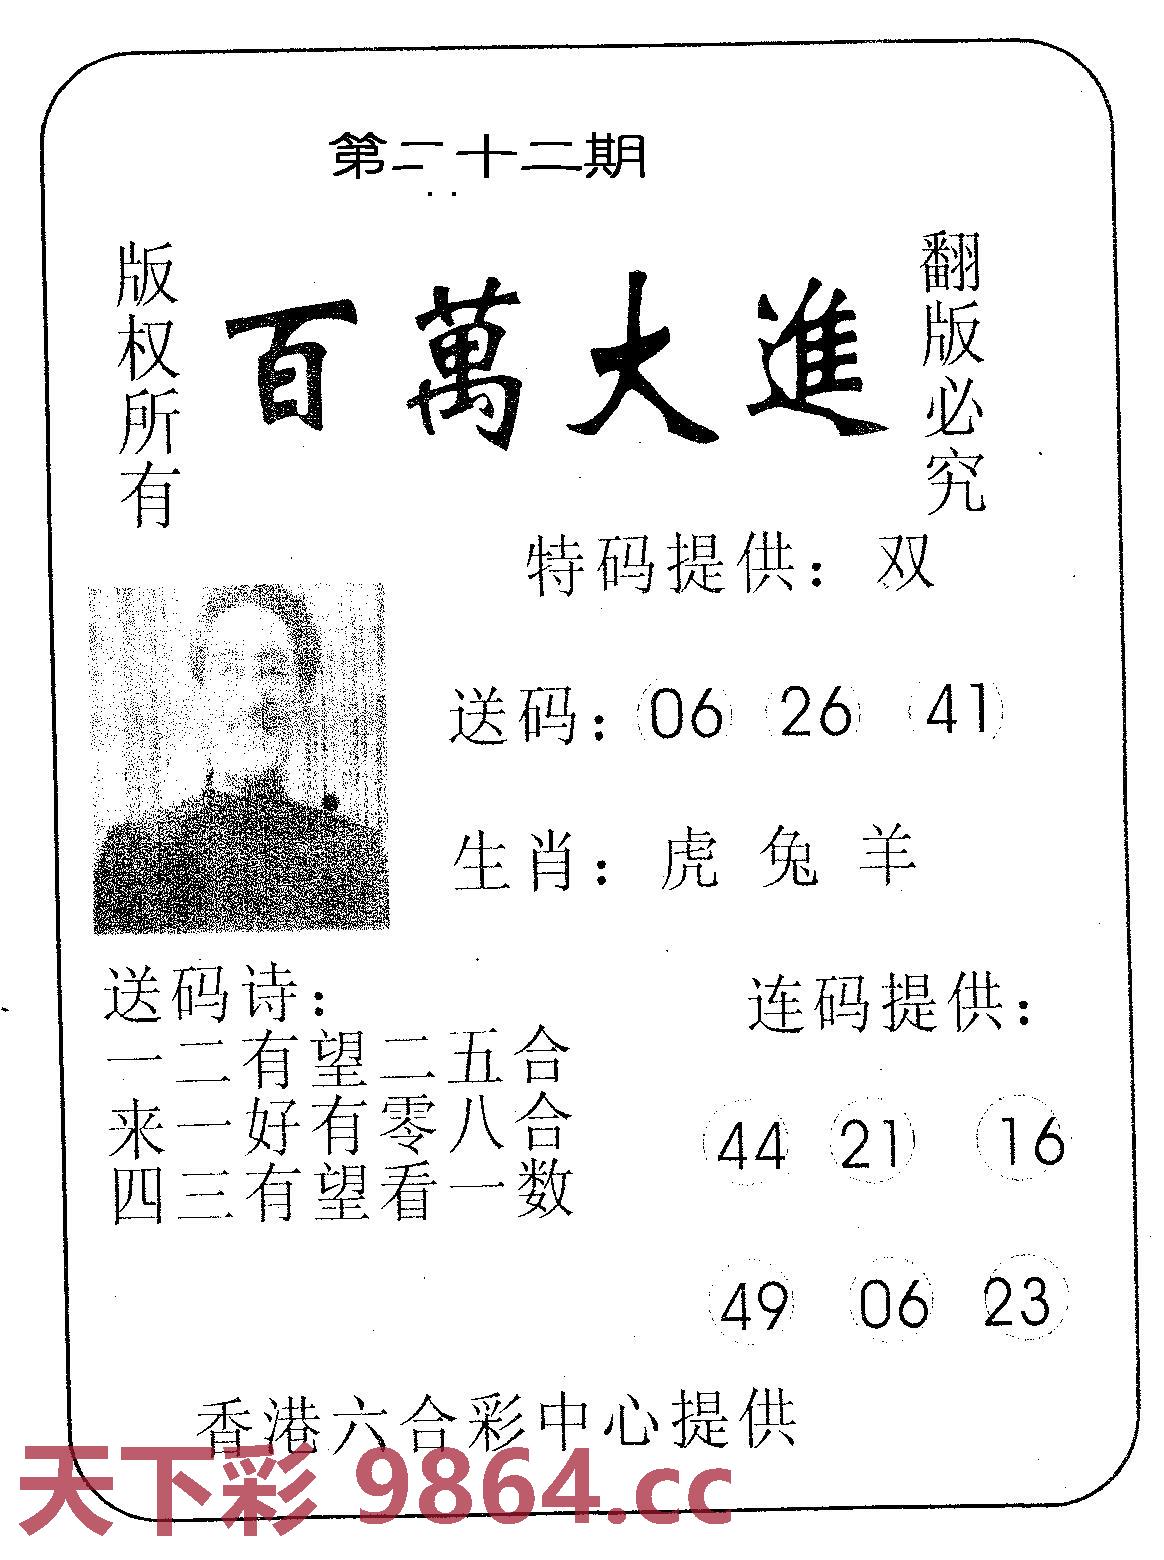 第二十二期
版权所有
百萬大進
翻版必究
特码提供：双
送码：06 26 41
生肖：虎 兔 羊
送码诗：
一二有望二五合
来一好有零八合
四三有望看一数
连码提供：
44 21 16
49 06 23
香港六合彩中心提供
天下彩 9864.cc